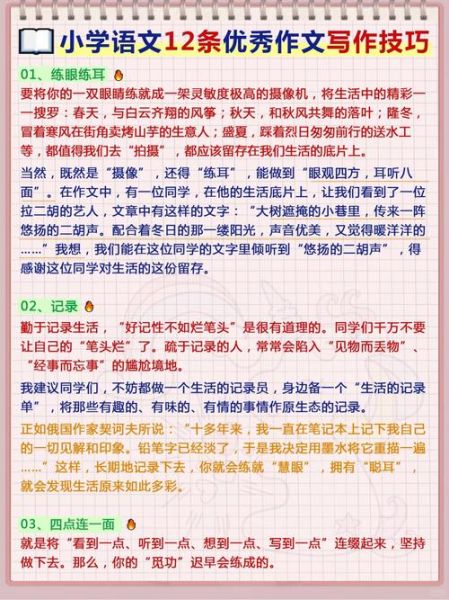 小学语文12条优秀作文写作技巧
01、练眼练耳
要将你的一双眼睛练就成一架灵敏度极高的摄像机，将生活中的精彩一
一搜罗：春天，与白云齐翔的风筝；秋天，和秋风共舞的落叶；隆冬，
冒着寒风在街角卖烤山芋的生意人；盛夏，踩着烈日匆匆前行的送水工
等，都值得我们去“拍摄”，都应该留存在我们生活的底片上。
当然，既然是“摄像”，还得“练耳”，能做到“眼观四方，耳听八
面”。在作文中，有一位同学，在他的生活底片上，让我们看到了一位
拉二胡的艺人，文章中有这样的文字：“大树遮掩的小巷里，传来一阵
悠扬的二胡声。配合着冬日的那一缕阳光，声音优美，又觉得暖洋洋的
……”我想，我们能在这位同学的文字里倾听到“悠扬的二胡声”，得
感谢这位同学对生活的这份留存。
02、记录
勤于记录生活，“好记性不如烂笔头”是很有道理的。同学们千万不要
让自己的“笔头烂”了。疏于记录的人，常常会陷入“见物而丢物”、
“经事而忘事”的尴尬境地。
我建议同学们，不妨都做一个生活的记录员，身边备一个“生活的记录
单”，将那些有趣的、有味的、有情的事情作原生态的记录。
正如俄国作家契诃夫所说：“十多年来，我一直在笔记本上记下我自己
的一切见解和印象。铅笔字已经淡了，于是我决定用墨水将它重描一遍
……”这样，长期地记录下去，你就会练就“慧眼”，拥有“聪耳”，
就会发现生活原来如此多彩。
03、四点连一面
就是将“看到一点、听到一点、想到一点、写到一点”连缀起来，坚持
做下去。那么，你的“觅功”迟早会练成的。